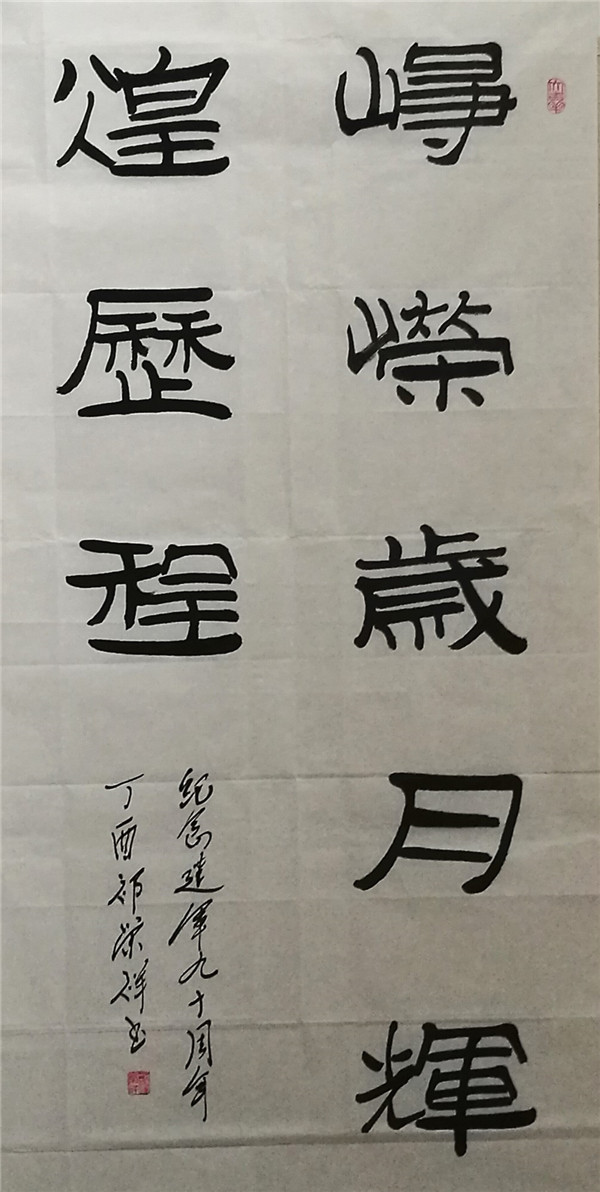 崢嶸歲月輝
煌歷程
紀念建軍九十周年
丁酉祁榮祥书